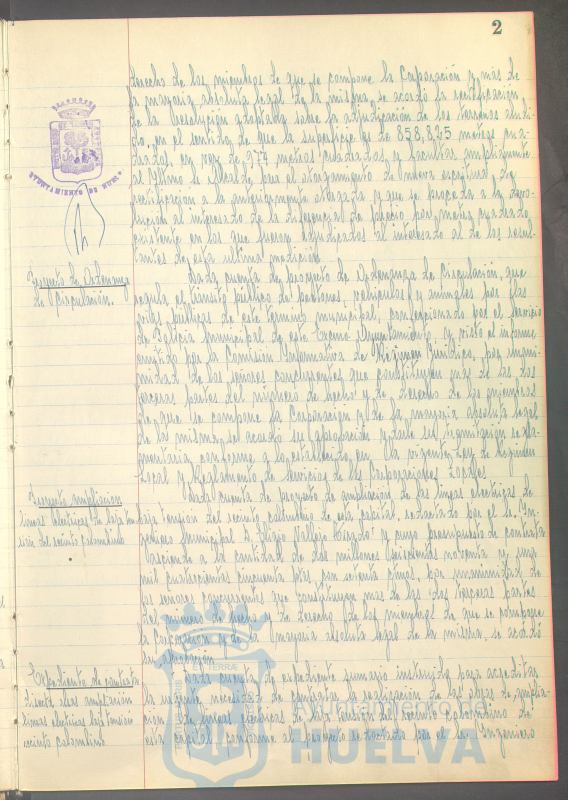 2
derecho de los miembros de que se compone la Corporación y más de
la mayoría absoluta legal de la misma, se acordó la rectificación
de la resolución adoptada sobre la adjudicación de los terrenos aludi-
do, en el sentido de que la superficie es de 858,825 metros cua-
drados, en vez de 977 metros cuadrados, y facultar ampliamente
al Iltmo. Sr. Alcalde para el otorgamiento de nueva escritura, de
rectificación a la anteriormente otorgada y que se proceda a la devo-
lución al interesado de la diferencia de precio por metro cuadrado,
existente en los que fueron adjudicados al interesado al de los resul-
tantes de esta última medición.
AYUNTAMIENTO DE HUELVA
Proyecto de Ordenanza
de Circulación.
Dada cuenta de proyecto de Ordenanza de Circulación, que
regula el tránsito público de peatones, vehículos y animales por las
vías públicas de este término municipal, confeccionado por el Servicio
de Policía Municipal de este Excmo. Ayuntamiento, y visto el informe
emitido por la Comisión Informativa de Régimen Jurídico, por unani-
midad de los señores concurrentes que constituyen más de las dos
terceras partes del número de hecho y de derecho de los miembros
de que se compone la Corporación y de la mayoría absoluta legal
de la misma, se acordó su aprobación y darle la tramitación regla-
mentaria conforme a lo establecido en la vigente Ley de Régimen
Local y Reglamento de Servicios de las Corporaciones Locales.
Proyecto ampliación
líneas eléctricas de baja ten-
sión del recinto colombino
Dada cuenta de proyecto de ampliación de las líneas eléctricas de
baja tensión del recinto colombino de esta capital, redactado por el Sr. In-
geniero Municipal D. Eligio Vallejo y cuyo presupuesto de contrata
asciende a la cantidad de dos millones noventa y un
mil cuatrocientas cincuenta ptas. con setenta ctmos., por unanimidad de
los señores concurrentes que constituyen más de las dos terceras partes
del número de hecho y de derecho de los miembros de que se compone
la Corporación y de la mayoría absoluta legal de la misma, se acordó
su aprobación.
Expediente de contrata
directa obras ampliación
líneas eléctricas baja tensión
recinto colombino
Dada cuenta de expediente sumario instruido para acreditar
la urgente necesidad de contratar la realización de las obras de amplia-
ción de líneas eléctricas de baja tensión del recinto colombino de
esta capital, conforme al proyecto redactado por el Sr. Ingeniero
Ayuntamiento de
HUELVA